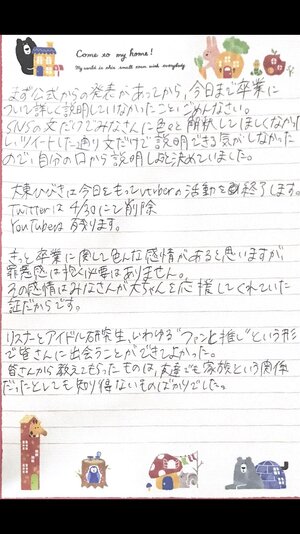 Come to my home!
My world is this small town with everybody
まず公式からの発表があってから、今日まで卒業に
ついて詳しく説明していなかったことごめんなさい。
SNSの文だけでみなさんに色々と解釈してほしくなかった
しツイートした通り文だけで説明できる気がしなかった
ので、自分の口から説明しようと決めていました。
大東ひびきは今日をもってvtuberの活動を終了します。
Twitterは4/30にて削除
YouTubeは残ります。
きっと卒業に関して色んな感情があると思いますが、
罪悪感は抱く必要はありません。
その感情はみなさんが大ちゃんを応援してくれていた
証だからです。
リスナーとアイドル研究生、いわゆる"ファンと推し"という形
で皆さんに出会うことができてよかった。
皆さんから教えてもらったものは、友達でも家族という関係
だったとしても知り得ないものばかりでした。